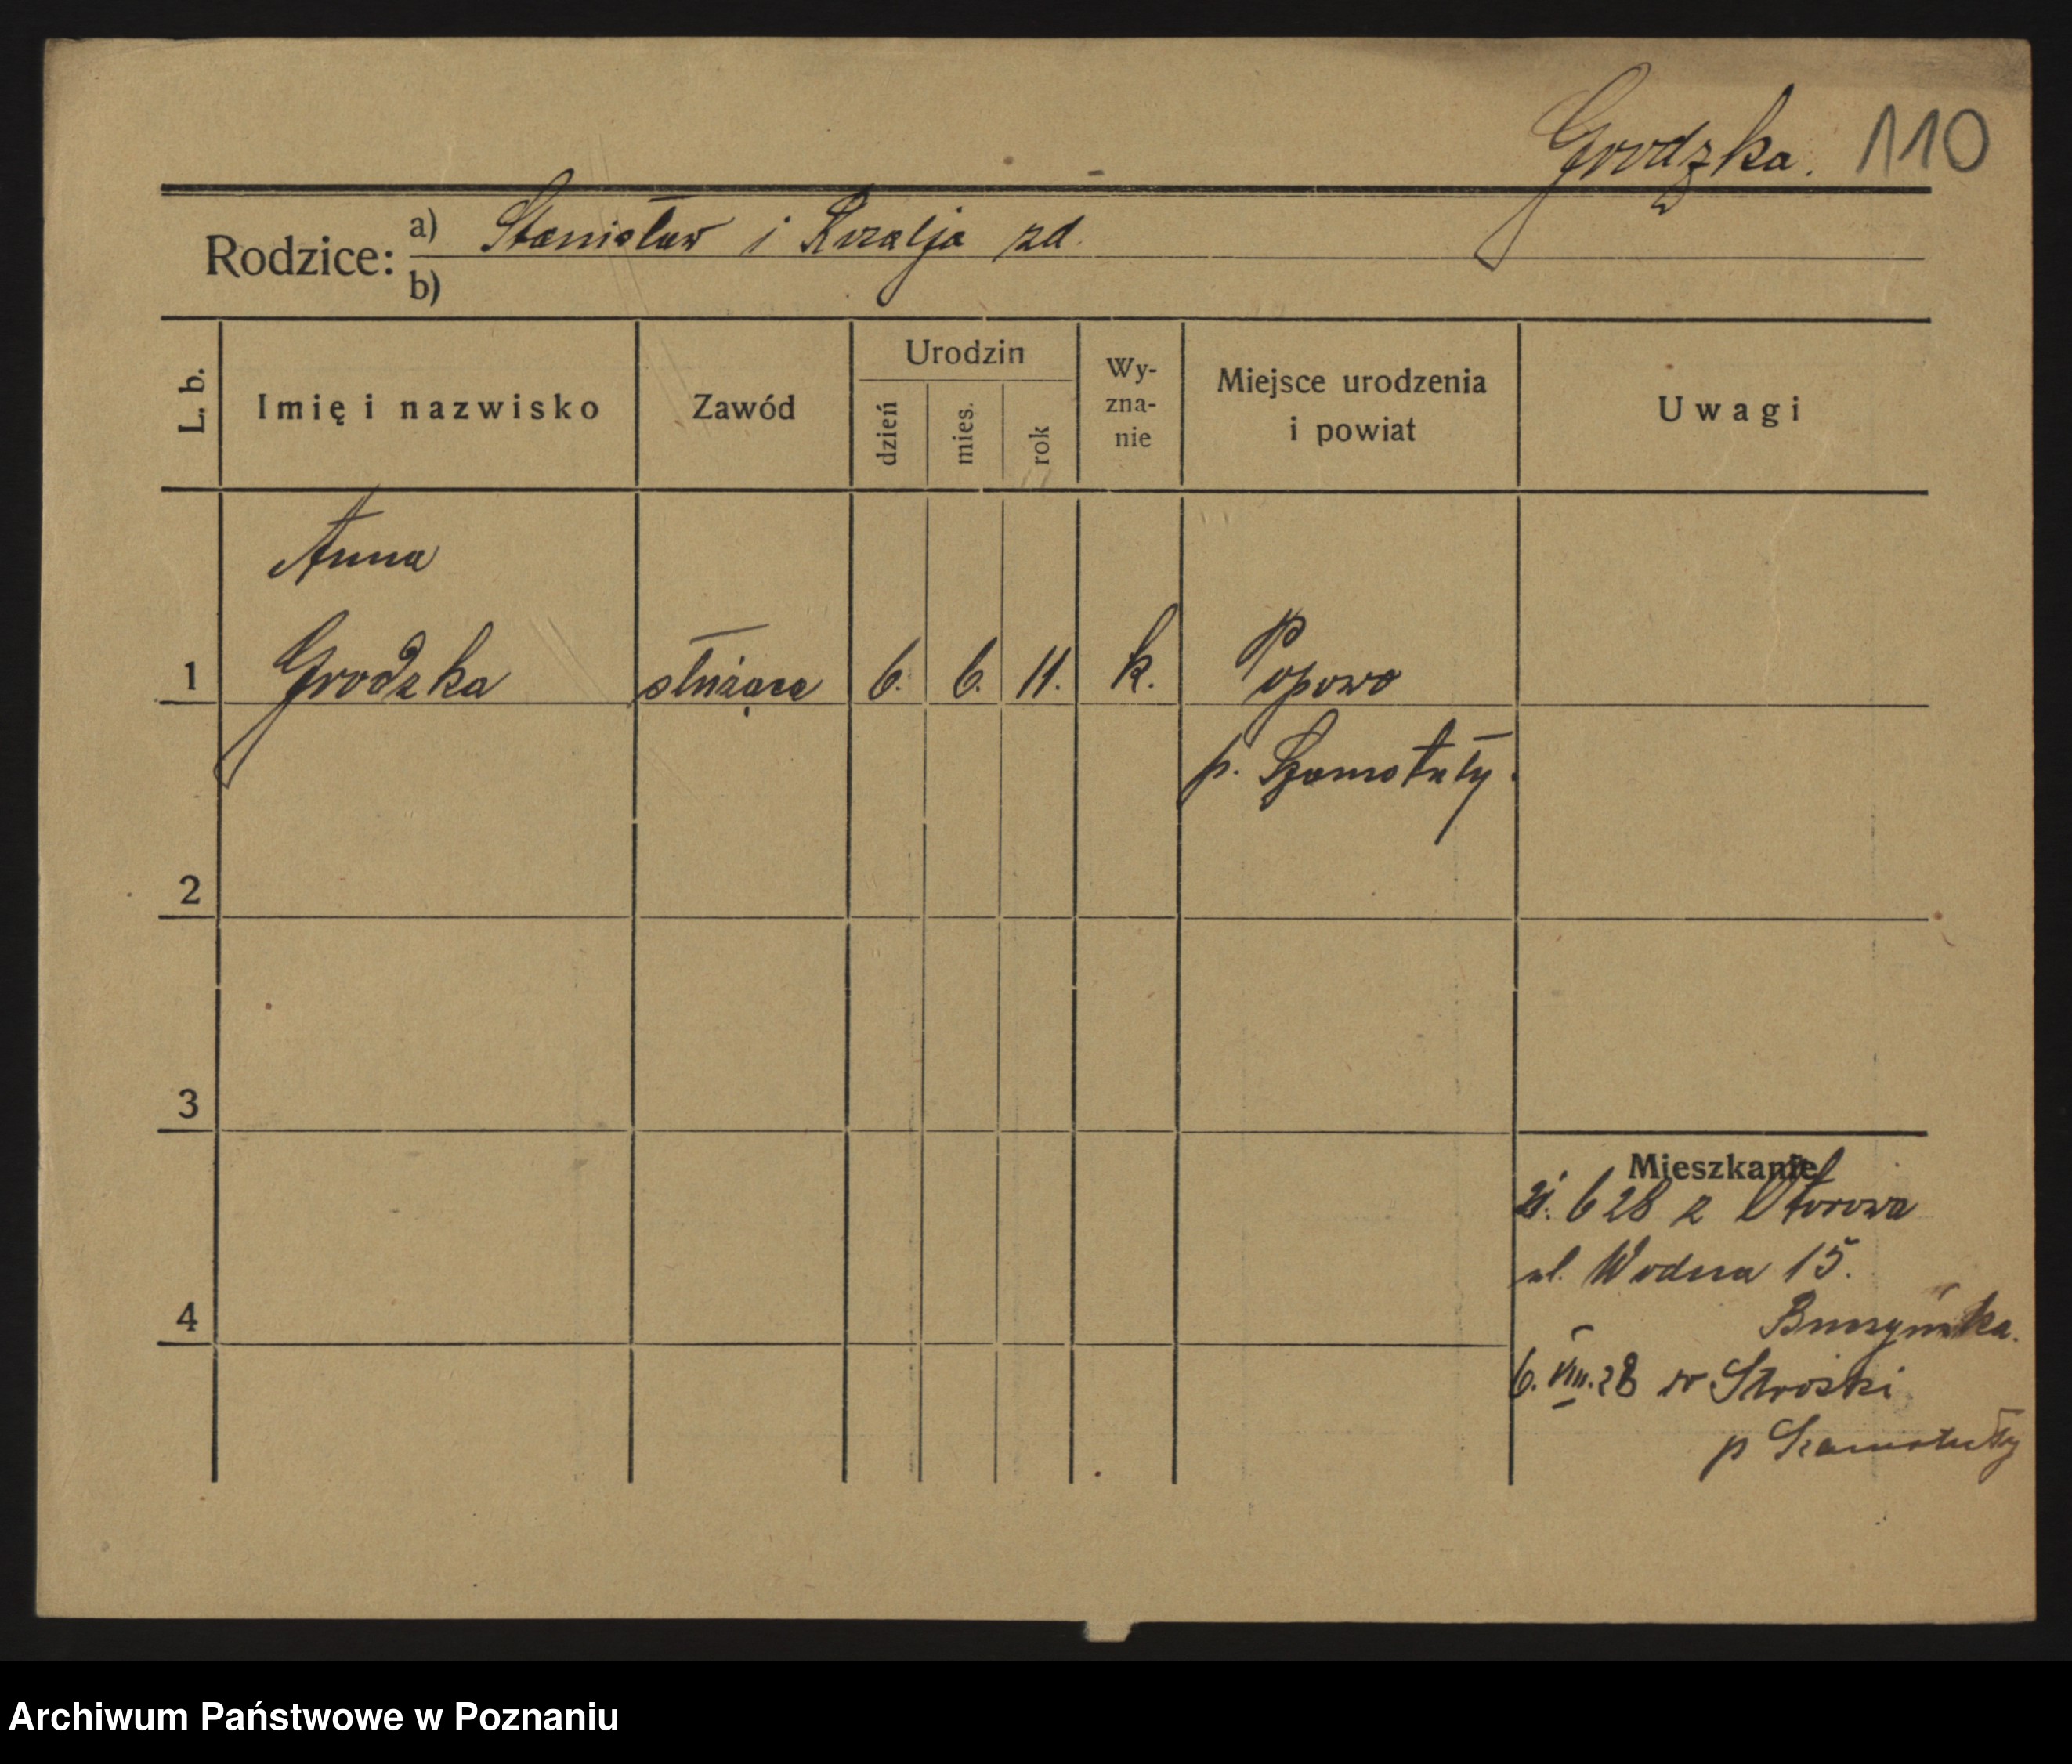 Grodzka. 110
Rodzice: a) Stanisław i Rozalja zd.
b)
L. b.
Imię i nazwisko
Zawód
Urodzin
dzień
mies.
rok
Wy-
zna-
nie
Miejsce urodzenia
i powiat
Uwagi
Anna
1 Grodzka służąca 6. 6. 11. k. Popowo
p. Szamotuły.
2
3
Mieszkanie
6 28 z Otorowa
ul. Wodna 15.
4
6. VIII. 28 w Stroski
p Szamotuły
Archiwum Państwowe w Poznaniu